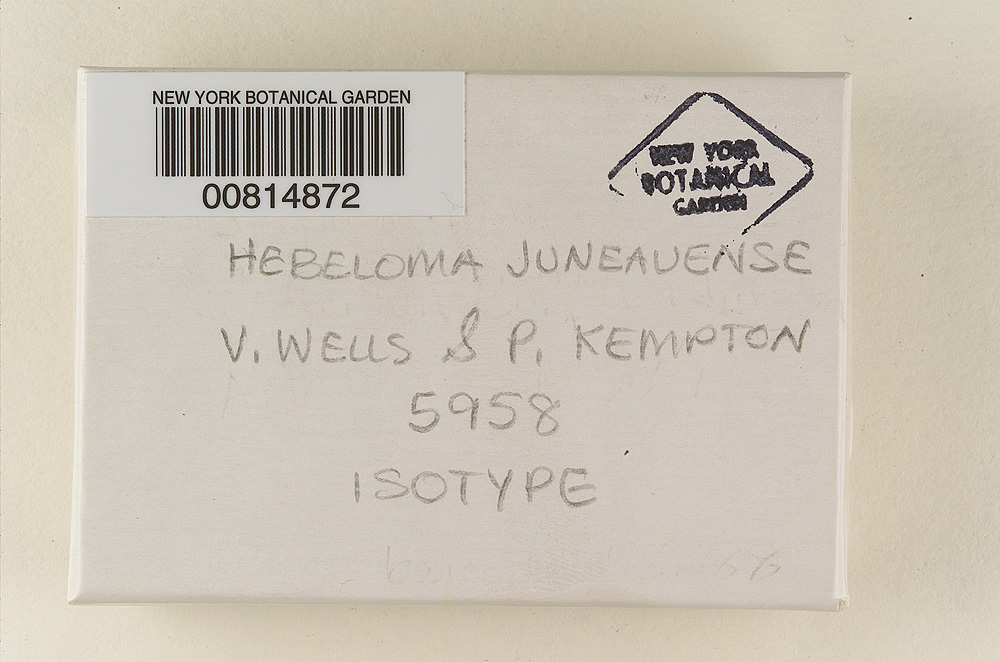 NEW YORK BOTANICAL GARDEN
00814872
NEW YORK
BOTANICAL
GARDEN
HEBELOMA JUNEAUENSE
V. WELLS & P. KEMPTON
5958
ISOTYPE